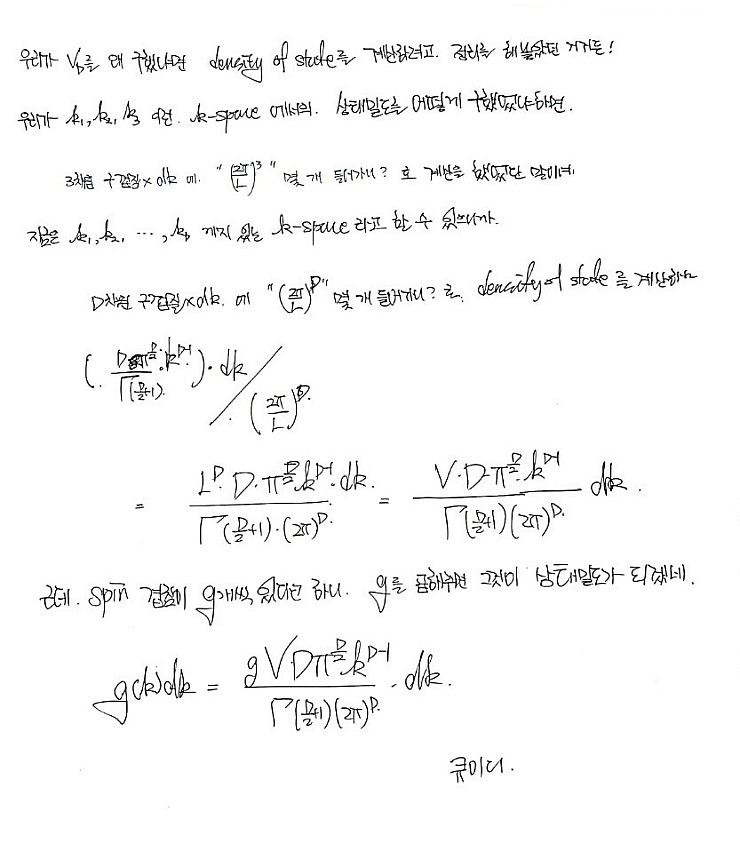 우리가 V_D를 왜 구했냐면 density of state를 계산하려고. 정리를 해봤었던 거거든!
우리가 k₁, k₂, k₃ 이런. k-space 에서의. 상태밀도를 어떻게 구했었냐하면.
3차원 구껍질×dk 에. "(2π/L)³" 몇 개 들어가니? 로 계산을 했었단 말이네
지금은 k₁, k₂, ⋯, k_D 까지 있는 k-space 라고 할 수 있으니까.
D차원 구껍질×dk. 에 "(2π/L)^D" 몇 개 들어가니? 로. density of state 를 계산하자
(D·π^{D/2}·k^{D-1} / Γ(D/2+1))·dk / (2π/L)^D
= L^D·D·π^{D/2}·k^{D-1}·dk / Γ(D/2+1)·(2π)^D = V·D·π^{D/2}·k^{D-1} / Γ(D/2+1)(2π)^D dk.
근데. spin 겹침이 g개씩 있다고 하니. g를 곱해주면 그것이 상태밀도가 되겠네.
g(k)dk = gVDπ^{D/2}k^{D-1} / Γ(D/2+1)(2π)^D · dk.
큐이디.